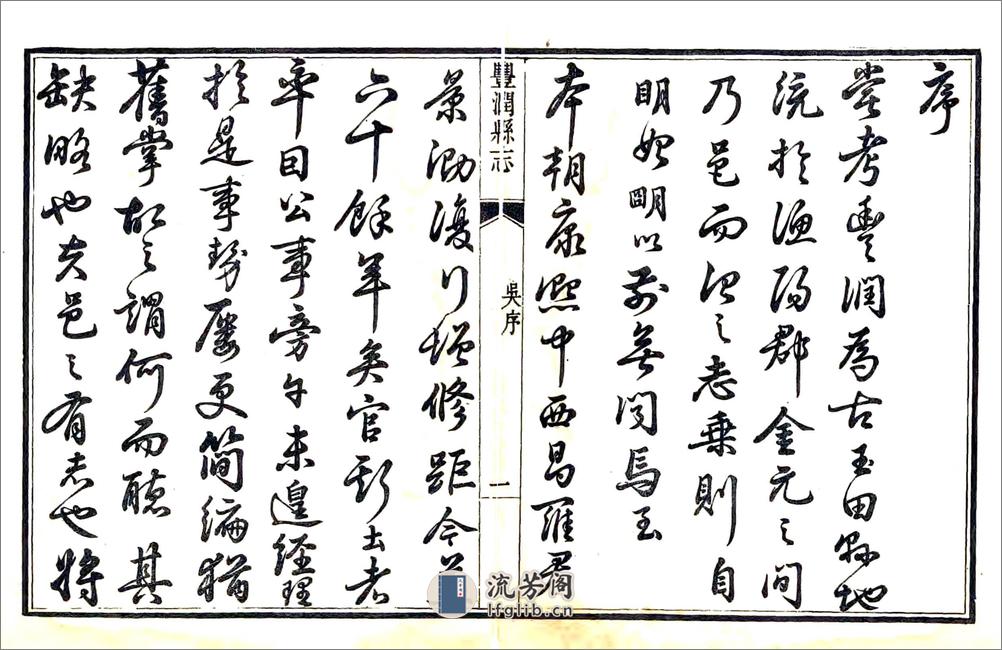 序
嘗考豐潤為古玉田縣地
統於漁陽郡金元之間
乃邑而治之志乘則自
明始明以前無聞焉至
本朝康熙中西昌羅君
豐潤縣志
吳序
一
景泐復行增修距今
六十餘年矣官斯土者
率因公事旁午未遑經理
於是事勢屢更簡編猶
舊掌故之謂何而聽其
缺略也夫邑之有志也將
流芳阁
lfglib.cn